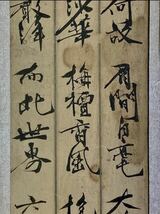 何故眉間白毫大
沙華栴檀香風
而此世界六